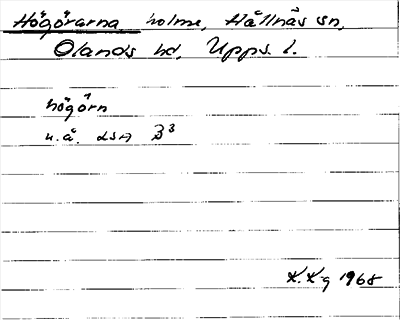 Högörarna, holme, Hållnäs sn,
Olands hd, Upps. l.
högörn
u.å. LSA B³
K.K-g 1968